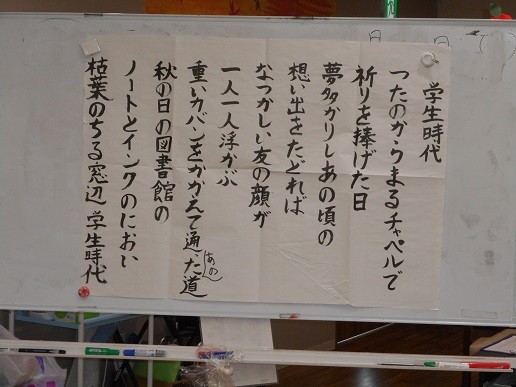 学生時代
つたのからまるチャペルで
祈りを捧げた日
夢多かりしあの頃の
想い出をたどれば
なつかしい友の顔が
一人一人浮かぶ
重いカバンをかかえて通った道
秋の日の図書館の
ノートとインクのにおい
枯葉のちる窓辺 学生時代